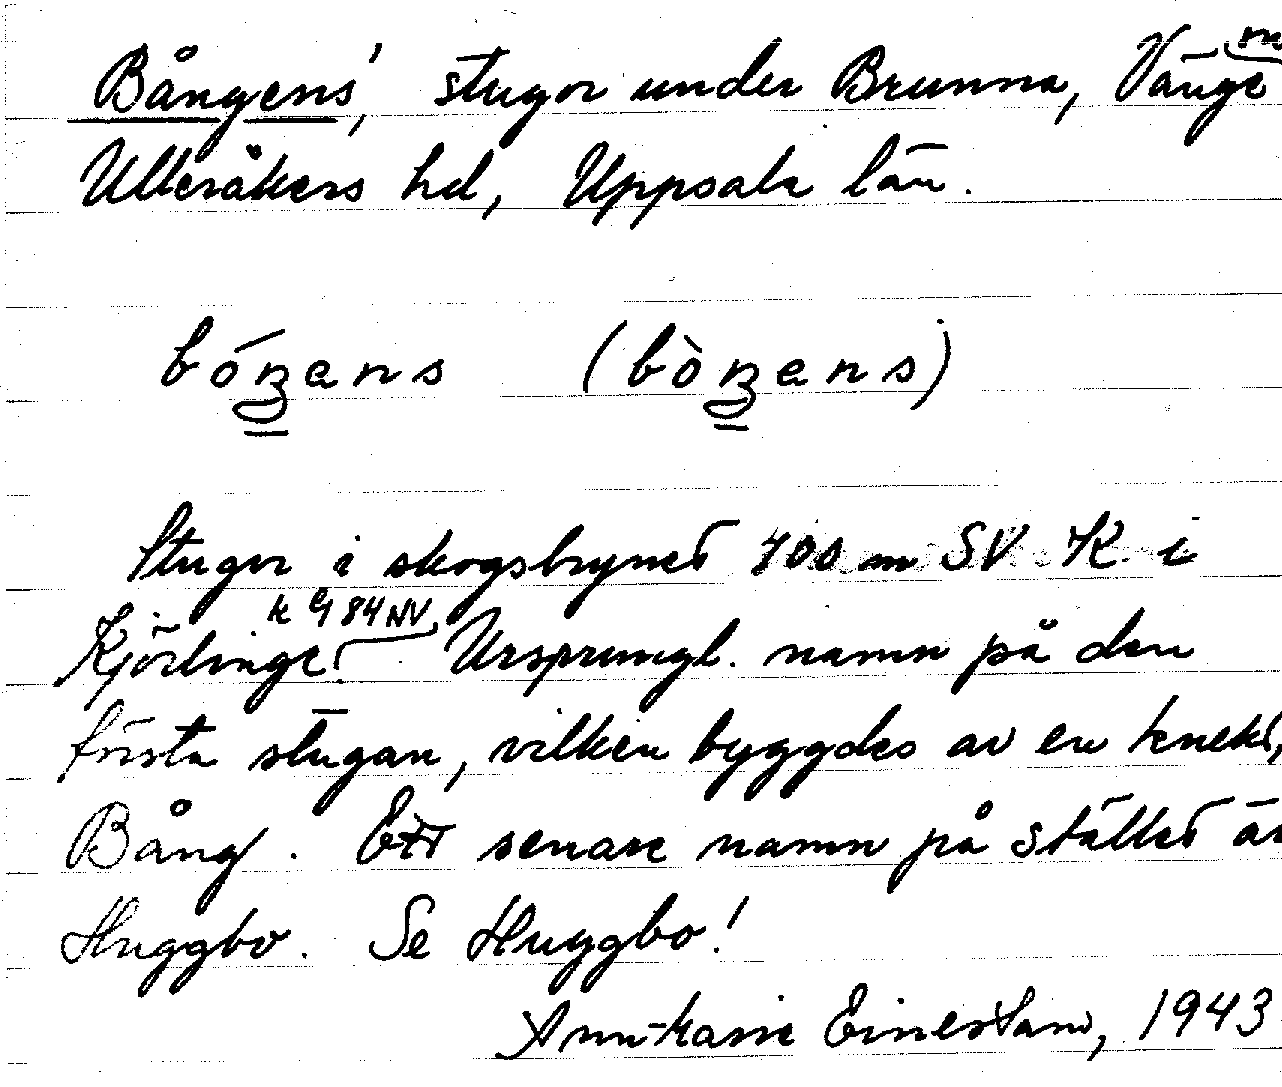 Bångens', stugor under Brunna, Vänge
Ulleråkers hd, Uppsala län.
Stugor i skogsbrynet 700 m SV K i
k G 84 NV
Kjörlinge. Ursprungl. namn på den
första stugan, vilken byggdes av en knekt,
Bång. Ett senare namn på stället är
Huggbo. Se Huggbo!
1943